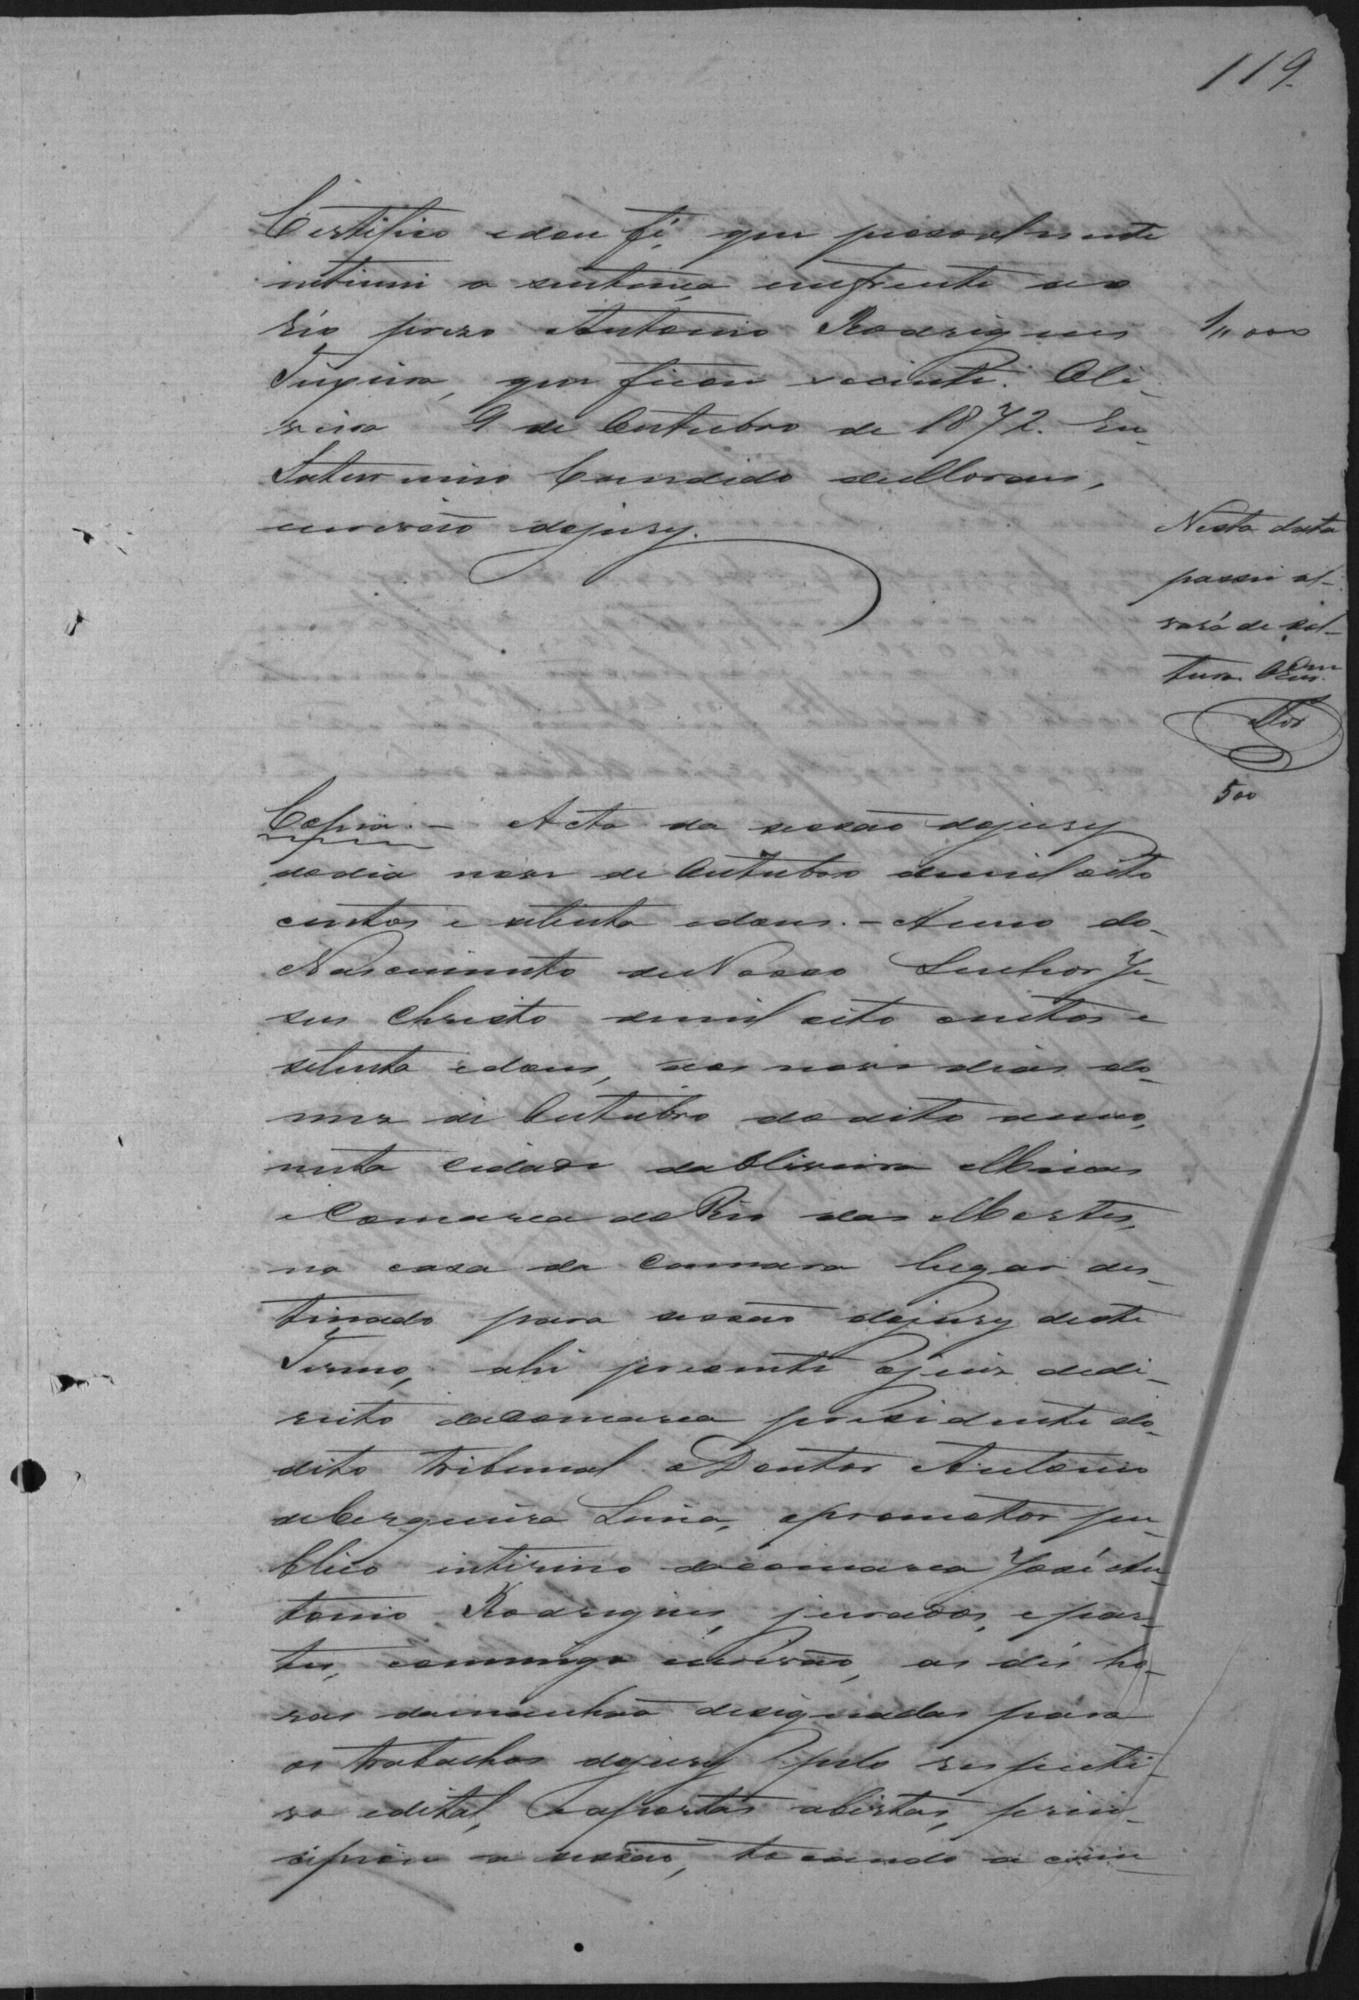 119.
Certifico e dou fé, que pessoalmente
intimei a sentença emfrente ao
réo prezo Antonio Rodrigues
1„000
Teixeira, que ficou sciente. Oli-
veira 9 de Outubro de 1872. Eu
Saturnino Candido de Moraes,
escrivão do jury.
Nesta data
passei al-
vará de sol-
tura.
500
Copia. – Acta da sessão do jury
do dia nove de Outubro de mil oito
centos e setenta e dous. – Anno do
Nascimento de Nosso Senhor Je-
sus Christo de mil oito centos e
setenta e dous, aos nove dias do
mez de Outubro do dito anno,
nesta Cidade da Oliveira Minas
e Comarca do Rio das Mortes,
na casa da Camara lugar des-
tinado para sessão do jury deste
Termo, ahi presente o juiz de di-
reito da comarca presidente do
dito tribunal o Doutor Antonio
de Cerqueira Lima, o promotor pu-
blico interino da comarca José An-
tonio Rodrigues, jurados, e par-
tes, commigo escrivão, as dés ho-
ras da manhã designadas para
os trabalhos do jury pelo respecti-
vo edital, e a portas abertas, prin-
cipiou a sessão, tocando a cam-